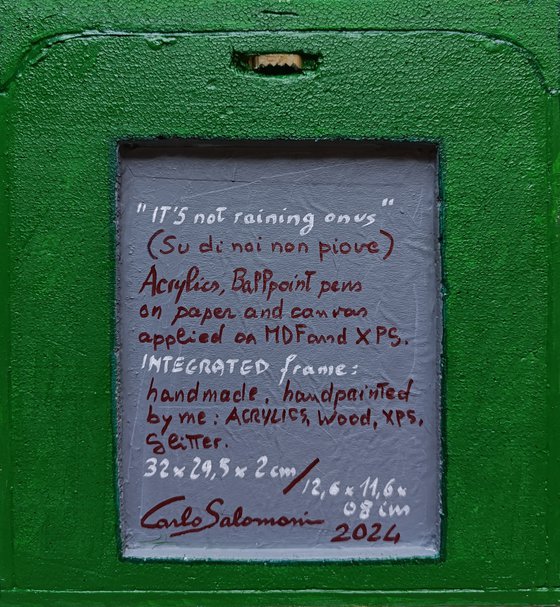 "IT'S not raining on us"
(Su di noi non piove)
Acrylics, Ballpoint pens
on paper and canvas
applied on MDF and XPS.
INTEGRATED frame:
handmade, handpainted
by me: ACRYLICS, Wood, XPS,
glitter.
32 x 29,5 x 2 cm /
12,6 x 11,6 x
08 im
Carlo Salomoni
2024